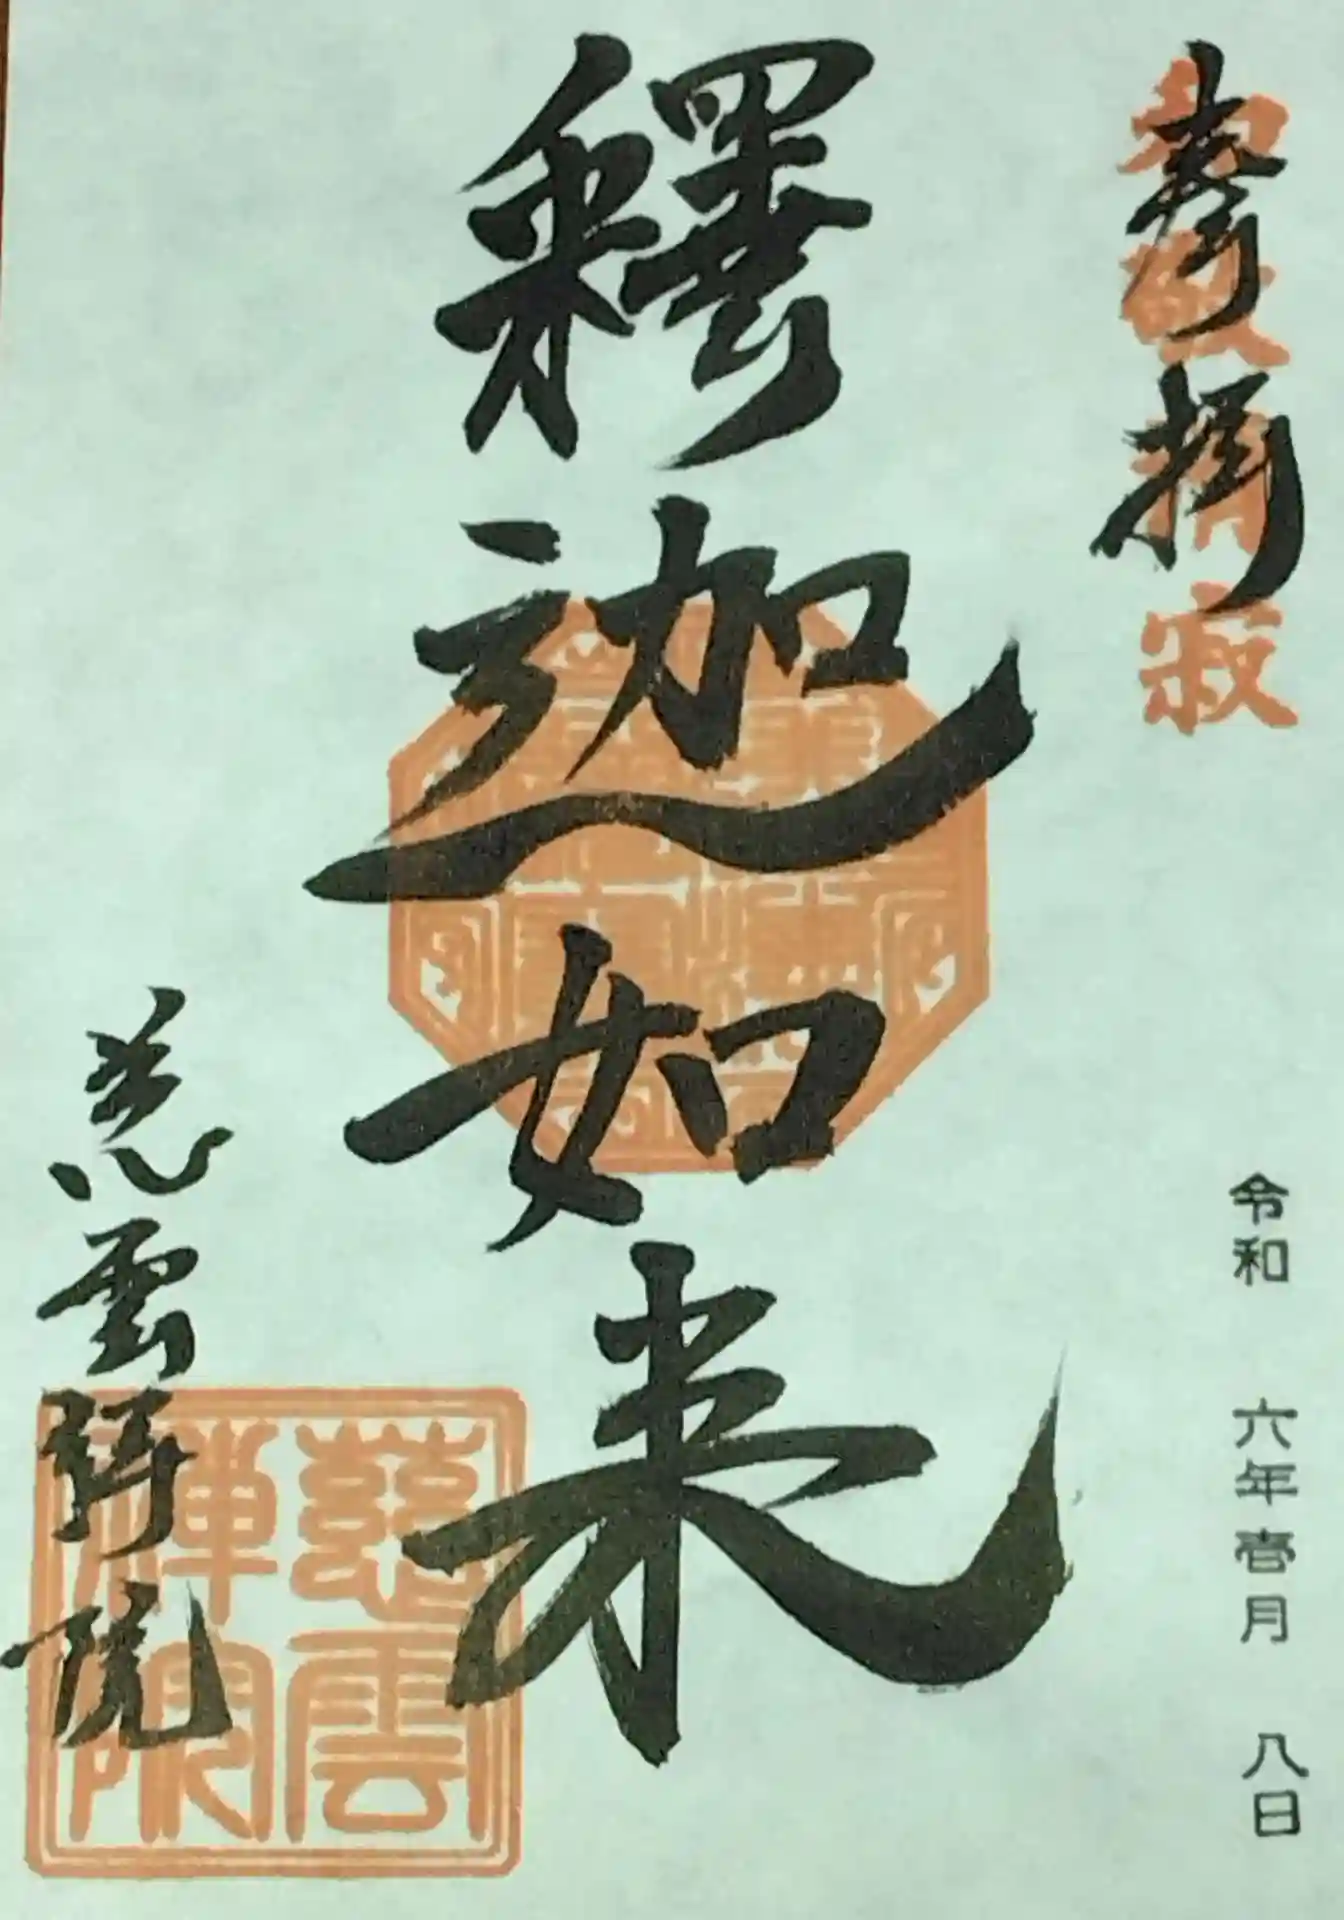 奉拝
和敬清寂
令和 六年壱月 八日
釋迦如来
慈雲禅院
慈雲禅院